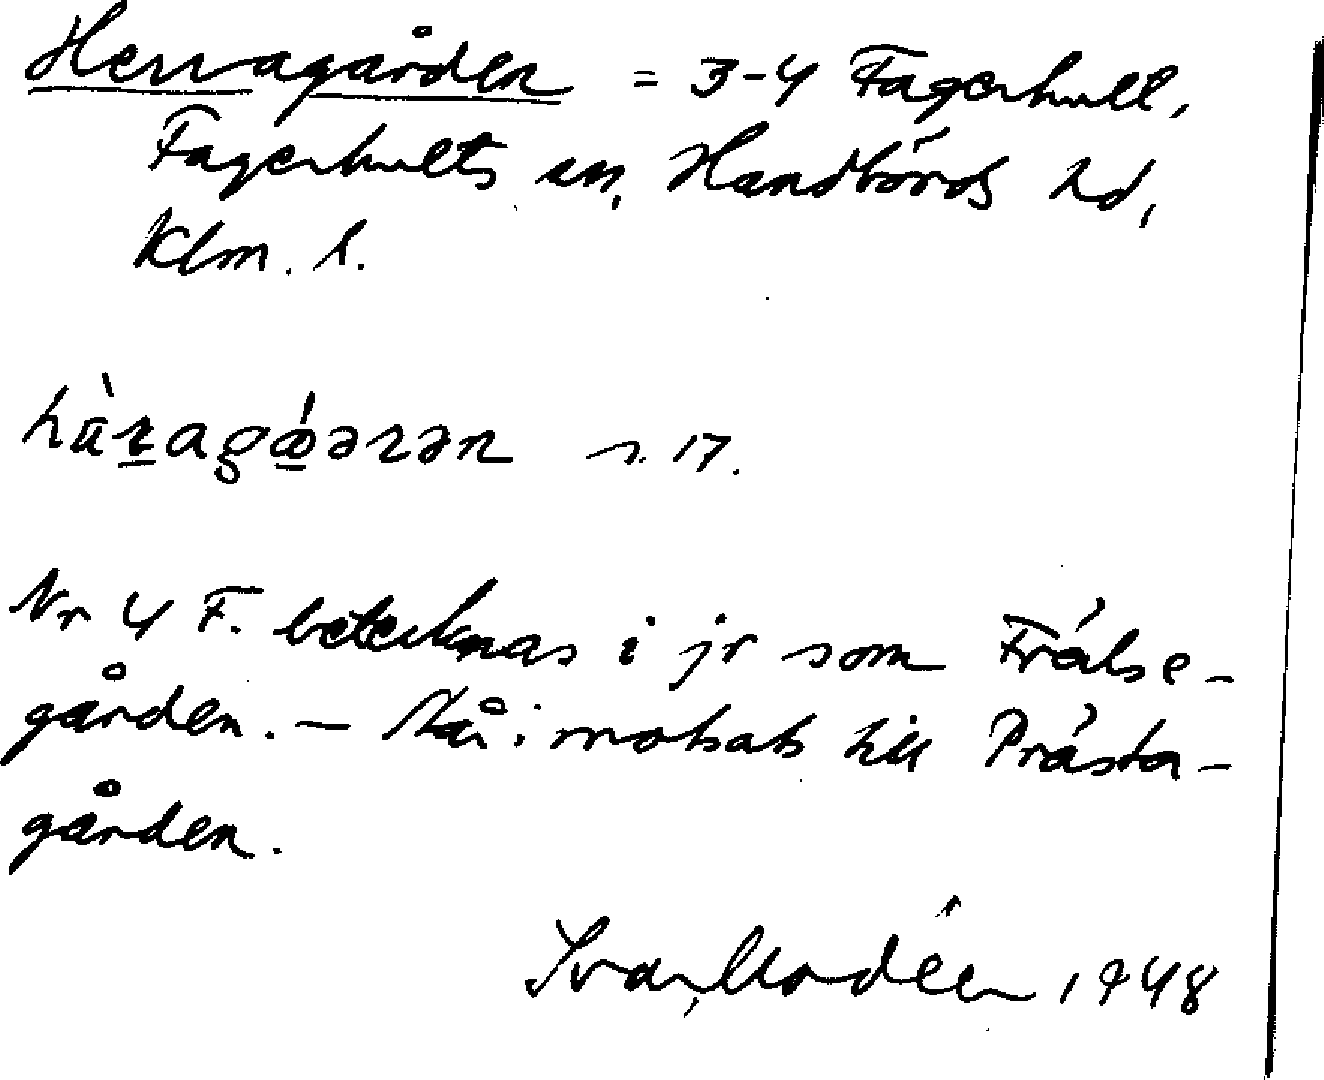 Herragården = 3-4 Fagerhult,
Fagerhults sn, Handbörds hd,
Klm. l.
hà̈ragǿərən s. 17.
Nr 4 F. betecknas i jr som Frälse-
gården. — Nä: motsats till Prästa-
gården.
Ivar Modéer 1948